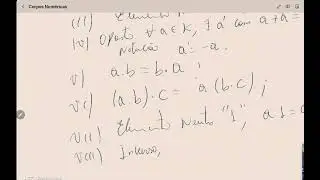 Corpos Numéricos
(III) Elemento
IV) Oposto ∀ a ∈ K, ∃ a' com a + a =
Notação a' = -a.
V) a.b = b.a ;
VI) (a.b).c = a(b.c) ;
VII) Elemento Neutro "1", a.1 =
VIII) Inverso,